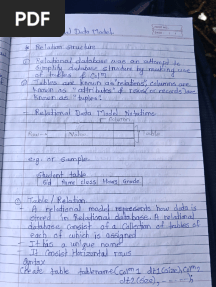 PDF
Relational Data Model
Relation structure
Relational database are an attempt to
simplify database structure by making use
of tables & column
Tables are known as "relations", columns are
known as "attributes" & rows or records are
known as "tuples".
Relational Data Model Notations
Columns
Row
Table
e.g. or sample
Student table
Sid Name class Marks Grade
Table / Relation
A relational model represents how data is
stored in Relational database. A relational
database consist of a collection of tables of
each of which is assigned
It has a unique name
It consist Horizontal rows
Syntax
Create table tablename (